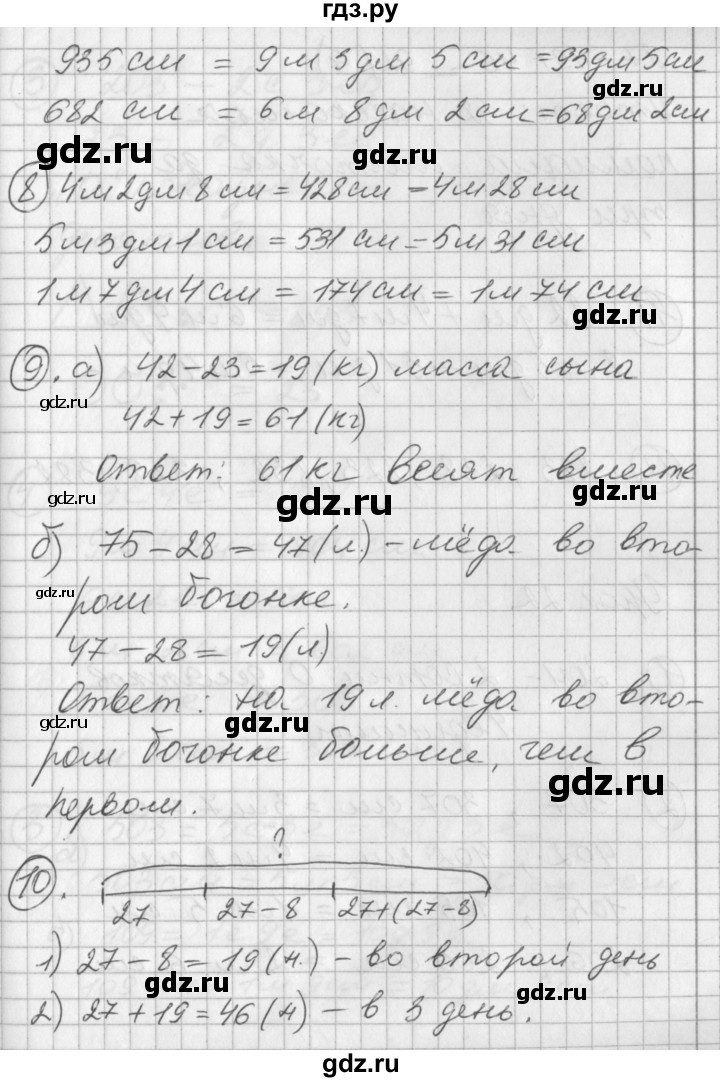 гдз.ру
935 см = 9 м 3 дм 5 см = 93 дм 5 см
gdz.ru
682 см = 6 м 8 дм 2 см = 68 дм 2 см
gdz.ru
gdz.ru
8 4 м 2 дм 8 см = 428 см = 4 м 28 см
5 м 3 дм 1 см = 531 см = 5 м 31 см
1 м 7 дм 4 см = 174 см = 1 м 74 см
gdz.ru
9. а) 42 - 23 = 19 (кг) масса сына
gdz.ru
42 + 19 = 61 (кг)
Ответ: 61 кг весят вместе
gdz.ru
gdz.ru
gdz.ru
б) 75 - 28 = 47 (л.) - мёда во вто-
gdz.ru
ром бочонке.
gdz.ru
47 - 28 = 19 (л)
Ответ: на 19 л. мёда во вто-
gdz.ru
gdz.ru
ром бочонке больше, чем в
gdz.ru
первом.
?
10.
27 27 - 8 27 + (27 - 8)
1) 27 - 8 = 19 (ч.) - во второй день
gdz.ru
gdz.ru
2) 27 + 19 = 46 (ч) - в 3 день.
gdz.ru